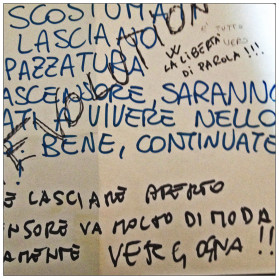 SCOSTUMA
LASCIANO
PAZZATURA
È TUTTO
W
LA LIBERTÀ
DI PAROLA!!!
ASCENSORE, SARANNO
ATI A VIVERE NELLO
BENE, CONTINUATE
E LASCIARE APERTO
ENSORE VA MOLTO DI MODA
AMENTE VERGOGNA!!